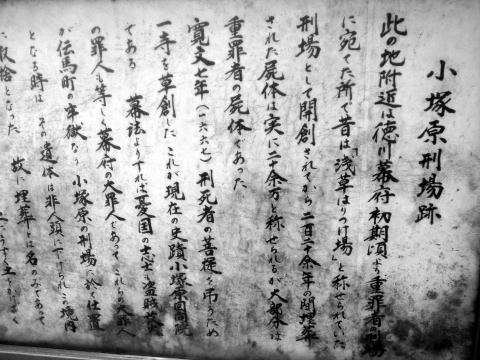 小塚原刑場跡
此の地附近は徳川幕府初期頃より重罪者の刑場
に宛てた所で昔は「浅草はりつけ場」と称せられていた
刑場として開創されてから二百二十余年の間埋葬
された屍体は実に二十余万と称せられるが大部分は
重罪者の屍体であった
寛文七年(一六六七)刑死者の菩提を弔うため
一寺を草創したこれが現在の史蹟小塚原回向院
である 幕法より すれば憂国の志士も盗賊
の罪人も等しく幕府の大罪人であってこれらの大罪人
が伝馬町の牢獄 小塚原の刑場に於て仕置
となる時は その遺体は非人頭に下しおかれこの境内
に取捨となった 故に埋葬とは名のみであって